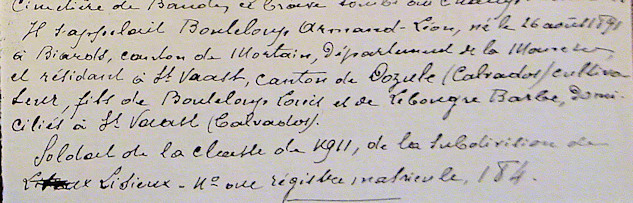 Cimetière de Baudes et trouvé tombé au Champ
Il s'appelait Bouteloup Armand-Léon, né le 26 août 1891
à Biards, canton de Mortain, Département de la Manche,
et résidant à St Vaast, canton de Dozulé (Calvados) cultiva
teur, fils de Bouteloup Louis et de Lebougre Barbe, Domi-
ciliés à St Vaast (Calvados).
Soldat de la classe de 1911, de la subdivision de
Lisieux - No au régistre matricule, 184.